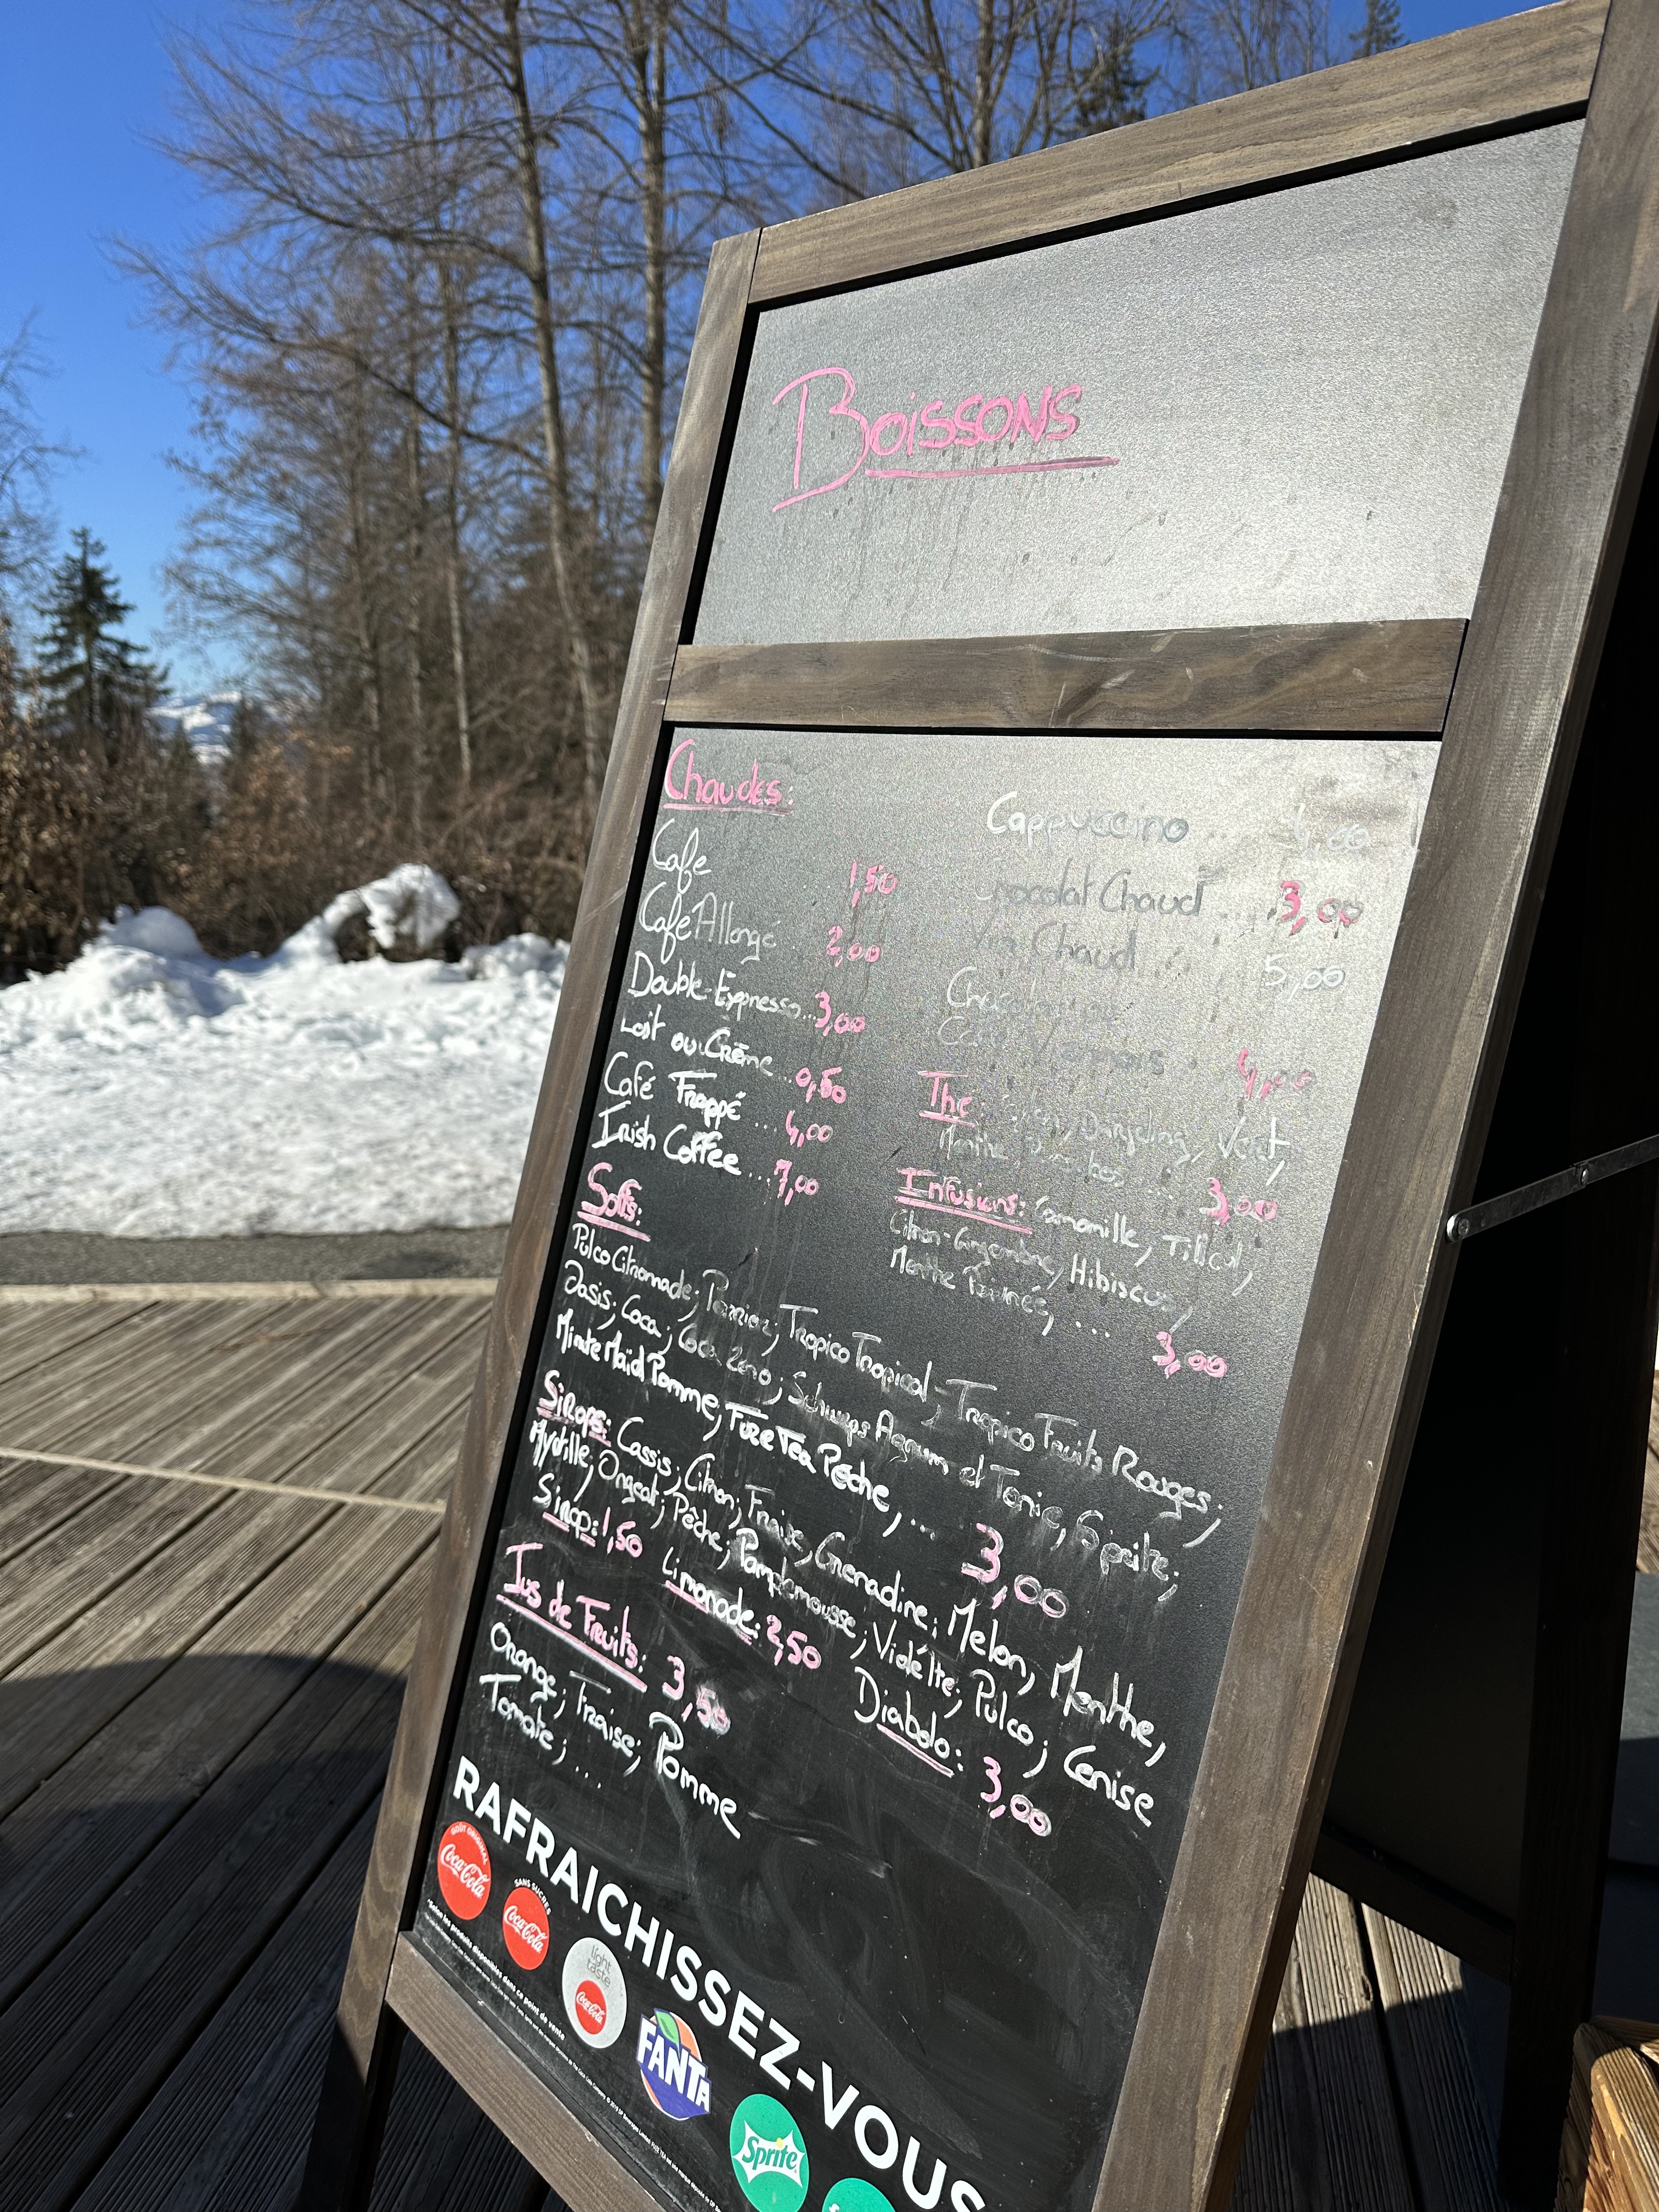 Boissons
Chaudes:
Cafe 1,50
Café Allongé 2,00
Double-Expresso... 3,00
Lait ou Crème ... 0,50
Café Frappé ... 4,00
Irish Coffee ... 7,00
Cappuccino .. 4,00
Chocolat Chaud .... 3,00
Vin Chaud ... 5,00
Chocolat ou
Café Viennois . 4,00
The: Darjeeling, Vert,
Menthe ... 3,00
Infusions: Camomille, Tilleul,
Citron-Gingembre, Hibiscus,
Menthe Poivrée, ... 3,00
Softs:
Pulco Citronnade; Perrier; Tropico Tropical - Tropico Fruits Rouges;
Oasis; Coca; Coca Zero; Schweps Agrum et Tonic, Sprite;
Minute Maid Pomme, Fuze Tea Pêche, ... 3,00
Sirops: Cassis, Citron, Fraise, Grenadine; Melon, Menthe,
Myrtille; Orgeat; Pêche; Pamplemousse; Violette; Pulco; Cerise
Sirop: 1,50 Limonade: 2,50 Diabolo: 3,00
Jus de Fruits: 3,50
Orange; Fraise; Pomme
Tomate; ....
RAFRAICHISSEZ-VOUS
GOÛT ORIGINAL
Coca-Cola
SANS SUCRES
Coca-Cola
light taste
Coca-Cola
FANTA
Sprite
*Selon les produits disponibles dans ce point de vente